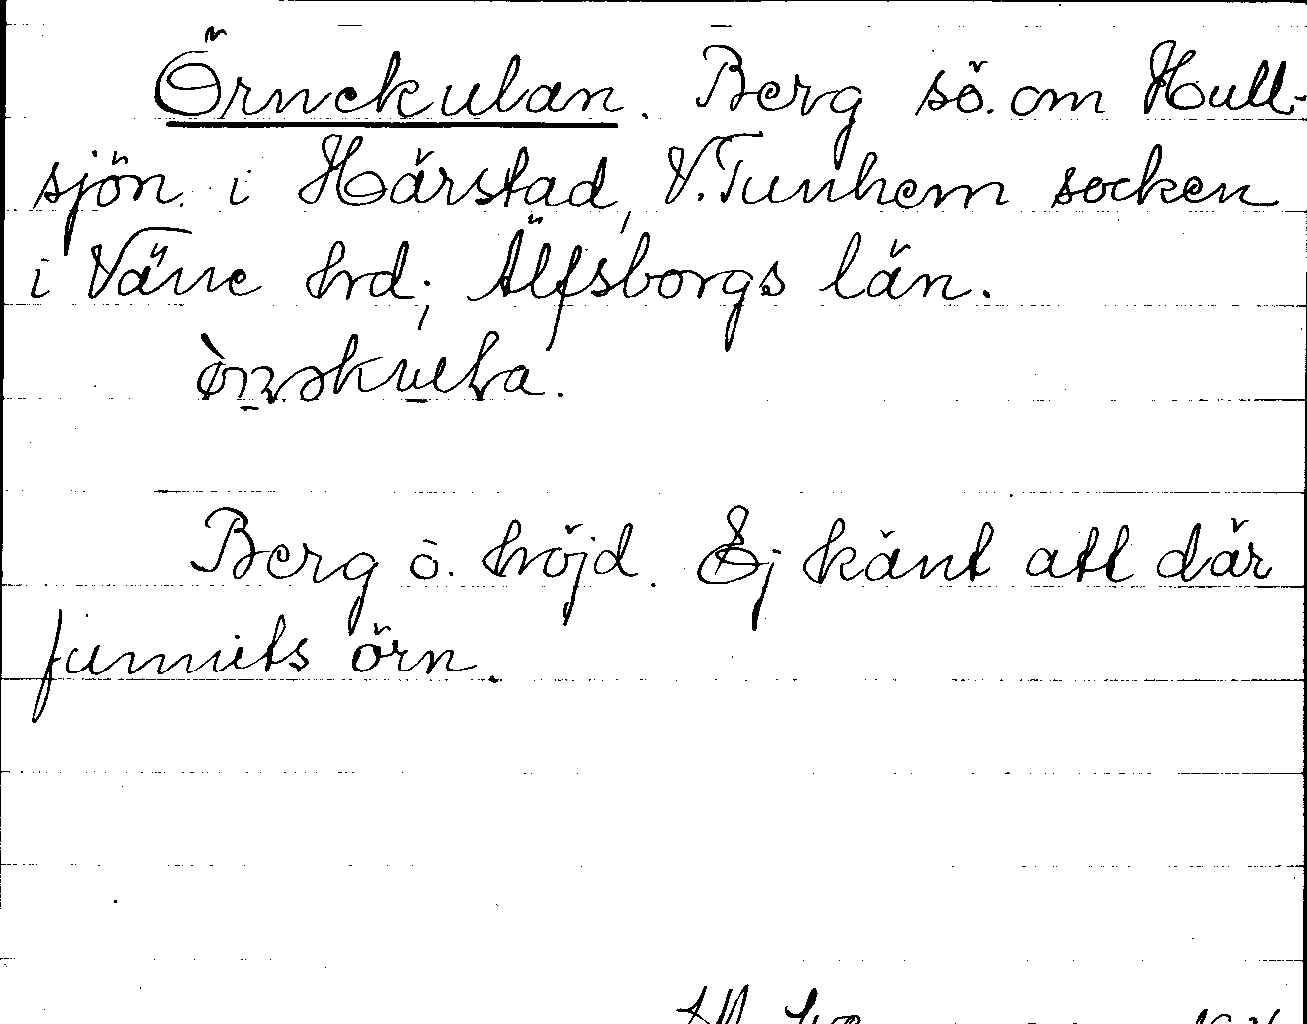 Örnekulan. Berg sö. om Hull-
sjön i Härstad, V. Tunhem socken
i Väne hrd; Älfsborgs län.
Berg o. höjd. Ej känt att där
funnits örn.